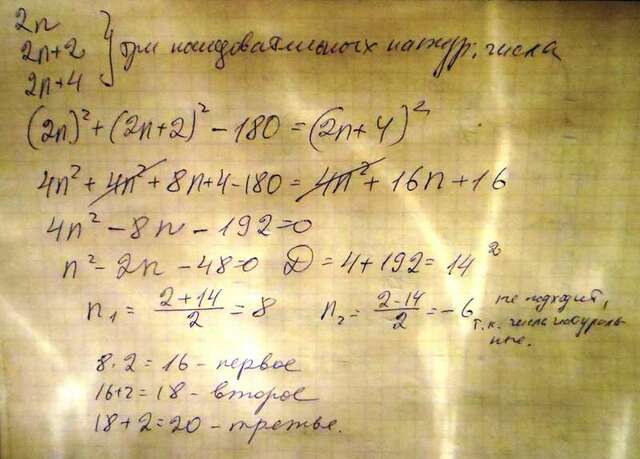 2n
2n+2
2n+4 } три последовательных натур. числа
(2n)² + (2n+2)² - 180 = (2n+4)²
4n² + 4n² + 8n+4-180 = 4n² + 16n + 16
4n² - 8n - 192=0
n² - 2n - 48=0 D = 4+192= 14²
n₁ = (2+14)/2 = 8 n₂ = (2-14)/2 = -6 не подходит,
т.к. числа натураль-
ные.
8·2 = 16 - первое
16+2 = 18 - второе
18+2=20 - третье.